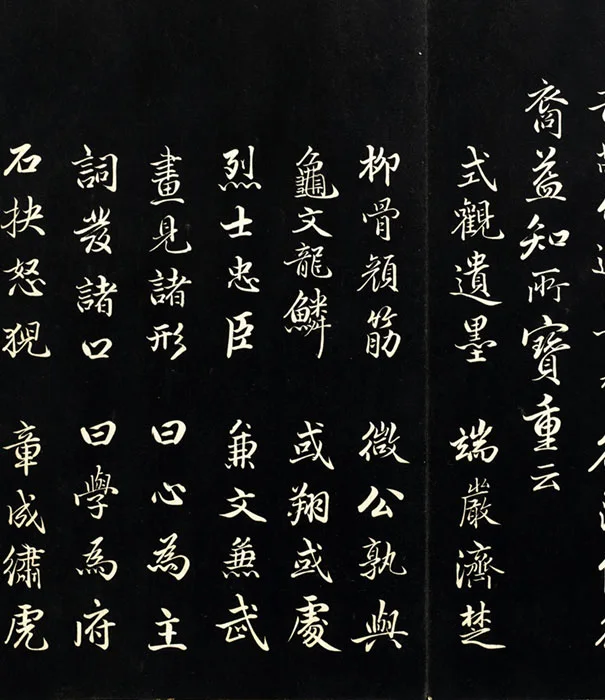 裔益知所寶重云
式觀遺墨 端嚴濟楚
柳骨顏筋 微公孰與
龜文龍鱗 或翔或處
烈士忠臣 兼文兼武
畫見諸形 曰心為主
詞發諸口 曰學為府
石抉怒猊 章成繡虎